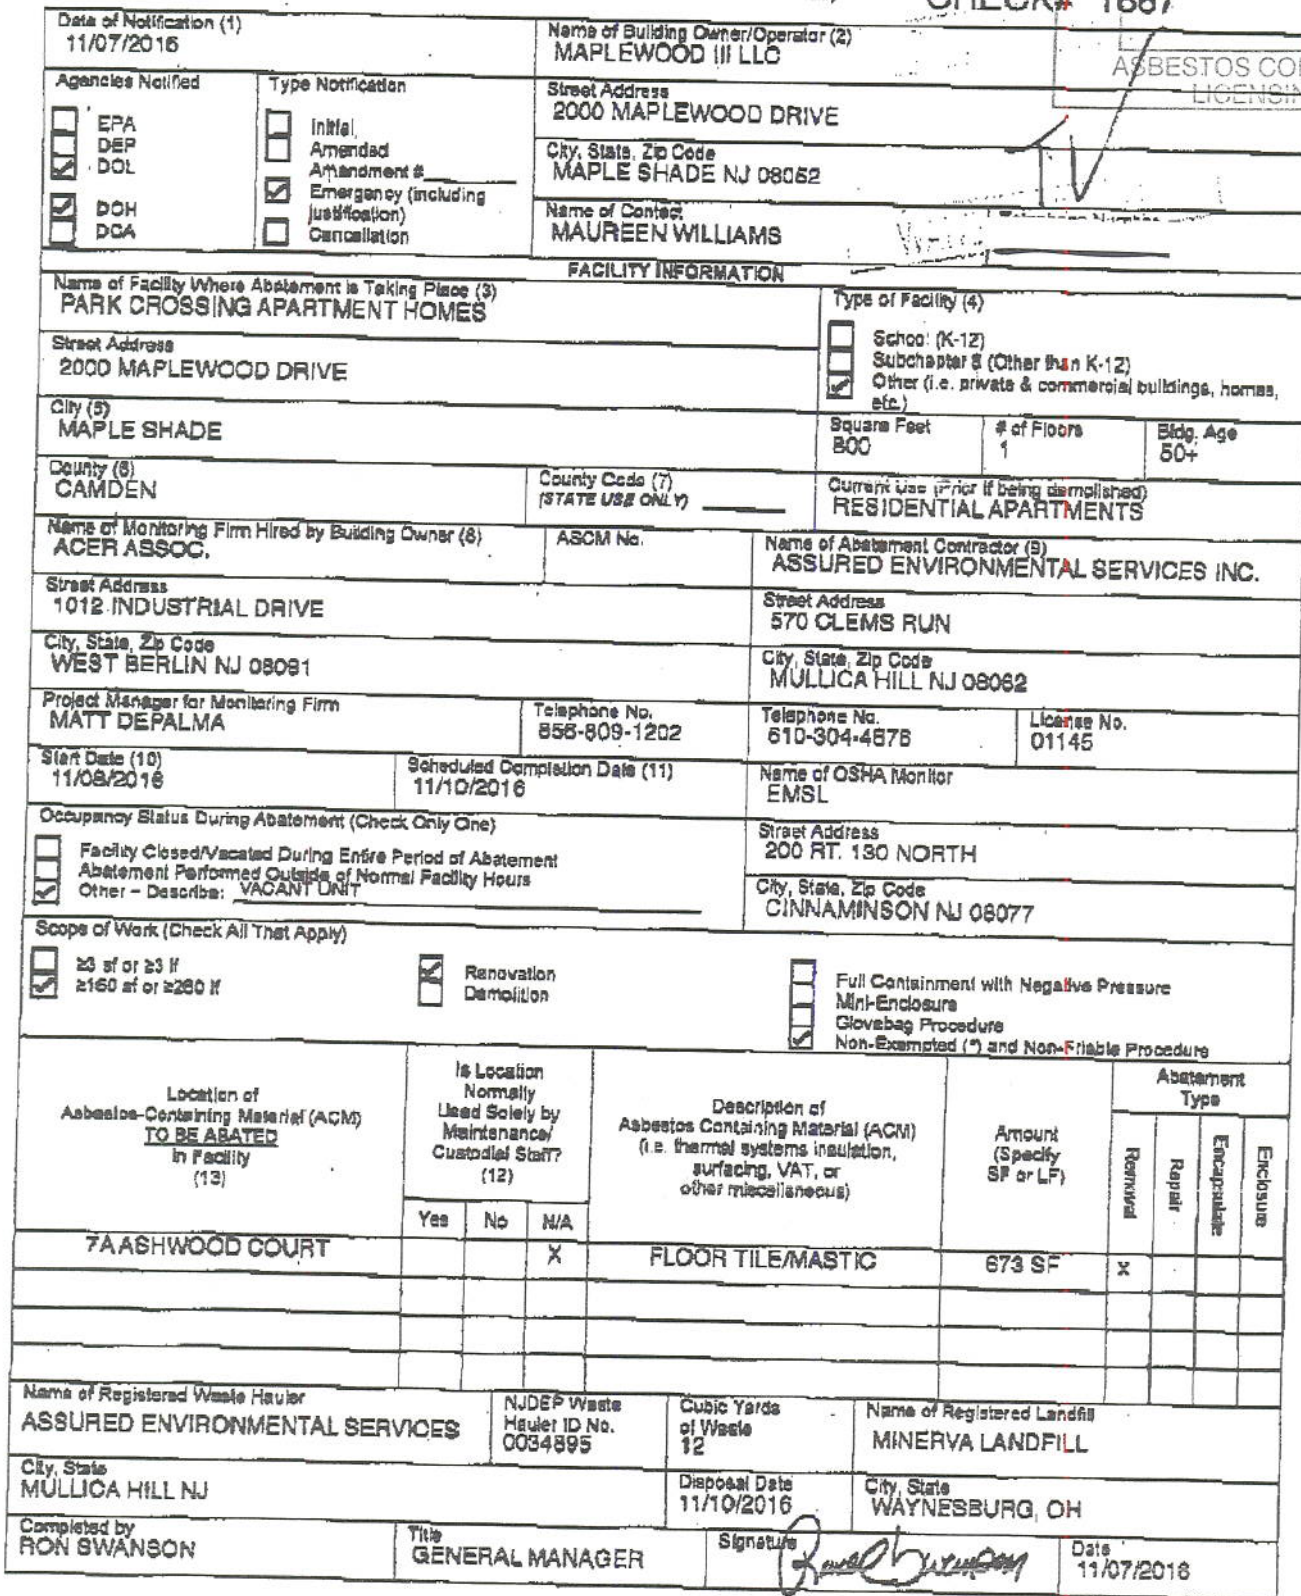 CHECK# 1667
ASBESTOS CO
LICENSIN
Date of Notification (1)
11/07/2016
Name of Building Owner/Operator (2)
MAPLEWOOD III LLC
Agencies Notified
EPA
DEP
DOL
DOH
DCA
Type Notification
Initial
Amended
Amendment #
Emergency (including
justification)
Cancellation
Street Address
2000 MAPLEWOOD DRIVE
City, State, Zip Code
MAPLE SHADE NJ 08052
Name of Contact
MAUREEN WILLIAMS
Telephone Number
FACILITY INFORMATION
Name of Facility Where Abatement is Taking Place (3)
PARK CROSSING APARTMENT HOMES
Type of Facility (4)
School (K-12)
Subchapter 8 (Other than K-12)
Other (i.e. private & commercial buildings, homes,
etc.)
Street Address
2000 MAPLEWOOD DRIVE
City (5)
MAPLE SHADE
Square Feet
800
# of Floors
1
Bldg. Age
50+
County (6)
CAMDEN
County Code (7)
(STATE USE ONLY)
Current Use (Prior if being demolished)
RESIDENTIAL APARTMENTS
Name of Monitoring Firm Hired by Building Owner (8)
ACER ASSOC.
ASCM No.
Name of Abatement Contractor (9)
ASSURED ENVIRONMENTAL SERVICES INC.
Street Address
1012 INDUSTRIAL DRIVE
Street Address
570 CLEMS RUN
City, State, Zip Code
WEST BERLIN NJ 08091
City, State, Zip Code
MULLICA HILL NJ 08062
Project Manager for Monitoring Firm
MATT DEPALMA
Telephone No.
856-809-1202
Telephone No.
610-304-4676
License No.
01145
Start Date (10)
11/08/2016
Scheduled Completion Date (11)
11/10/2016
Name of OSHA Monitor
EMSL
Occupancy Status During Abatement (Check Only One)
Facility Closed/Vacated During Entire Period of Abatement
Abatement Performed Outside of Normal Facility Hours
Other – Describe: VACANT UNIT
Street Address
200 RT. 130 NORTH
City, State, Zip Code
CINNAMINSON NJ 08077
Scope of Work (Check All That Apply)
≥3 sf or ≥3 lf
≥160 sf or ≥260 lf
Renovation
Demolition
Full Containment with Negative Pressure
Mini-Enclosure
Glovebag Procedure
Non-Exempted (*) and Non-Friable Procedure
Location of
Asbestos-Containing Material (ACM)
TO BE ABATED
in Facility
(13)
Is Location
Normally
Used Solely by
Maintenance/
Custodial Staff?
(12)
Yes No N/A
Description of
Asbestos Containing Material (ACM)
(i.e. thermal systems insulation,
surfacing, VAT, or
other miscellaneous)
Amount
(Specify
SF or LF)
Abatement
Type
Removal
Repair
Encapsulate
Enclosure
7A ASHWOOD COURT X FLOOR TILE/MASTIC 673 SF X
Name of Registered Waste Hauler
ASSURED ENVIRONMENTAL SERVICES
NJDEP Waste
Hauler ID No.
0034895
Cubic Yards
of Waste
12
Name of Registered Landfill
MINERVA LANDFILL
City, State
MULLICA HILL NJ
Disposal Date
11/10/2016
City, State
WAYNESBURG, OH
Completed by
RON SWANSON
Title
GENERAL MANAGER
Signature
Date
11/07/2016